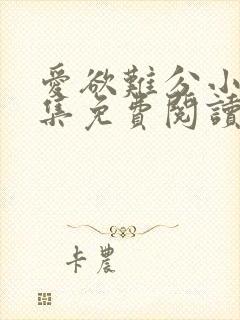 愛欲難分小
集免費閱讀
卡農